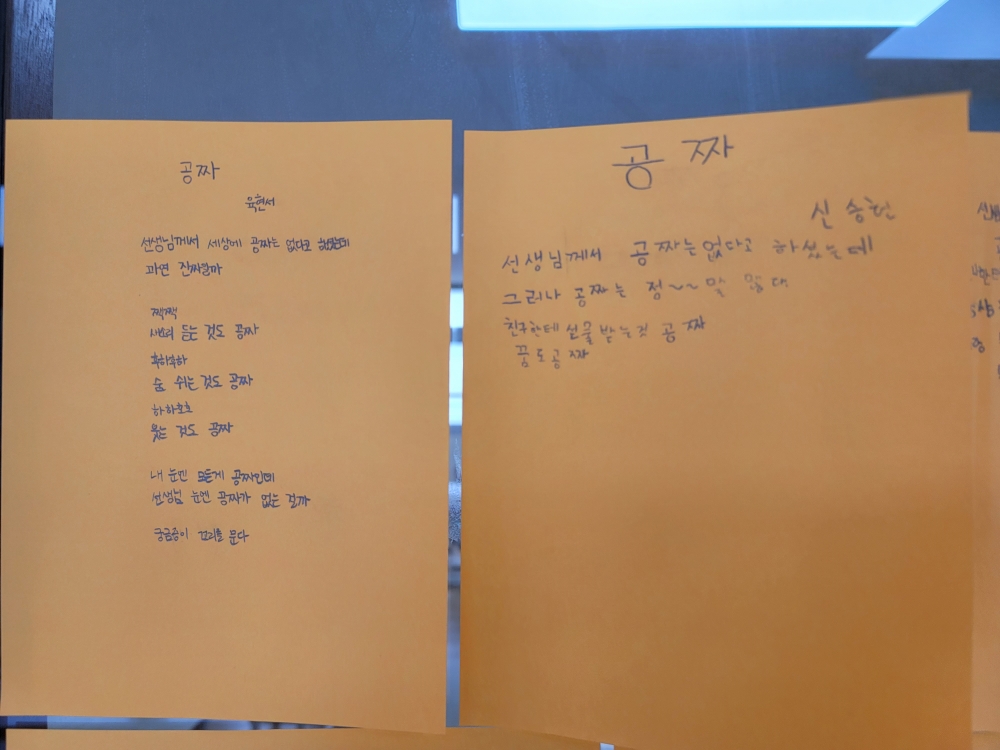 공짜
육현서
선생님께서 세상에 공짜는 없다고 하셨는데
과연 진짜일까
짹짹
새소리 듣는 것도 공짜
후하후하
숨 쉬는 것도 공짜
하하호호
웃는 것도 공짜
내 눈엔 모든게 공짜인데
선생님 눈엔 공짜가 없는 걸까
궁금증이 꼬리를 문다
공짜
신승헌
선생님께서 공짜는 없다고 하셨는데
그러나 공짜는 정~~말 많다
친구한테 선물 받는것 공짜
꿈도 공짜